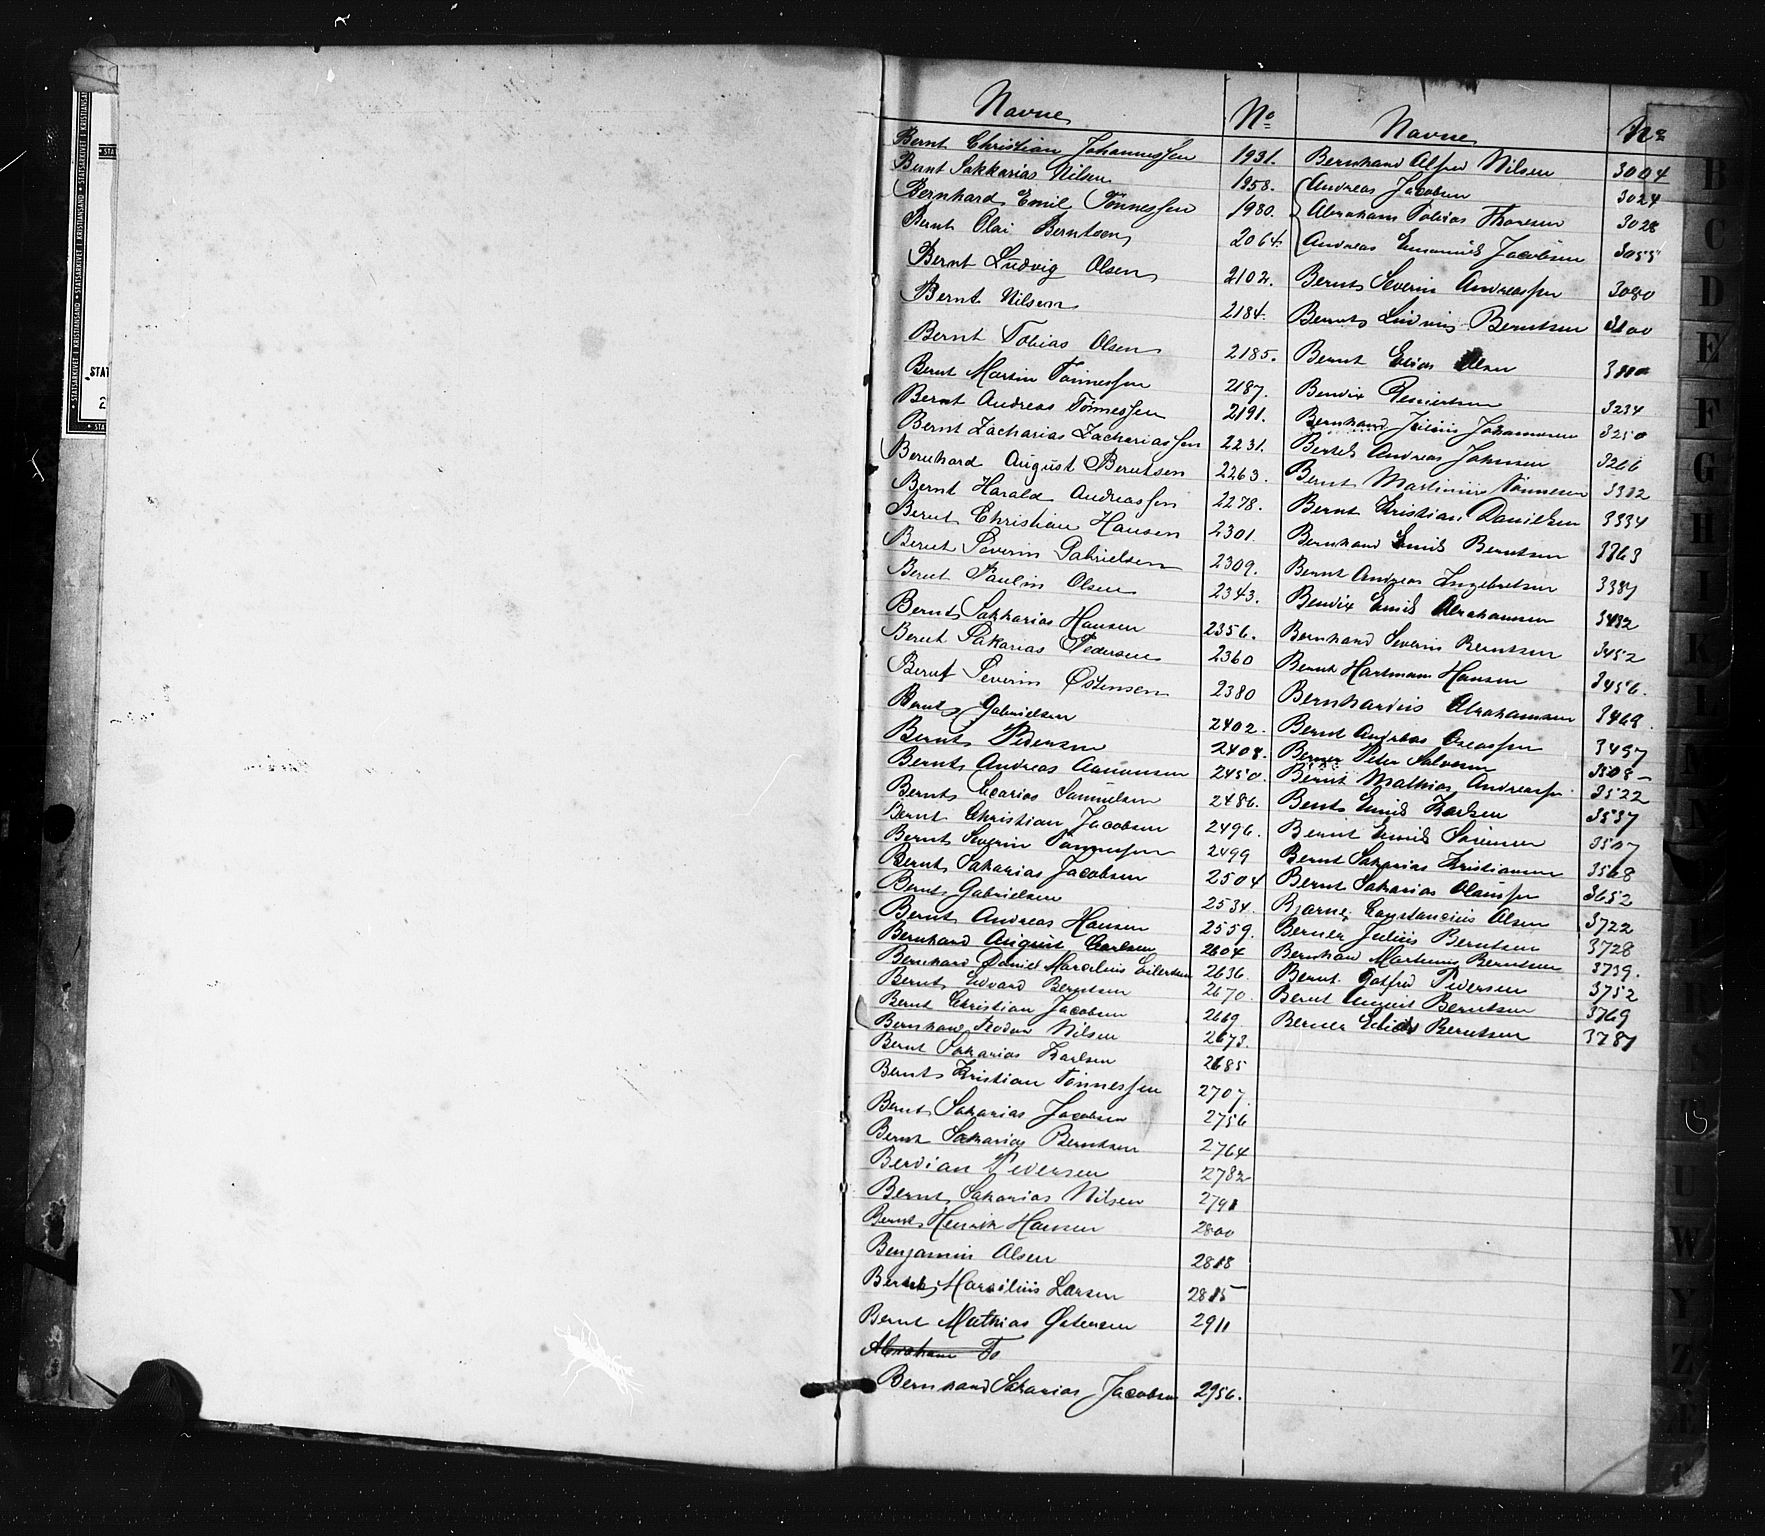 Navne No
Bernt Christian Johannessen 1931.
Bernt Sakkarias Nilsen 1958.
Bernhard Emil Tønnessen 1980.
Bernt Olai Berntsen 2064.
Bernt Ludvig Olsen 2102.
Bernt Nilsen 2184.
Bernt Tobias Olsen 2185.
Bernt Martin Tønnessen 2187.
Bernt Andreas Tønnessen 2191.
Bernt Zacharias Zachariassen 2231.
Bernhard August Berntsen 2263.
Bernt Harald Andreassen 2278.
Bernt Christian Hansen 2301.
Bernt Severin Gabrielsen 2309.
Bernt Paulin Olsen 2343.
Bernt Sakkarias Hansen 2356.
Bernt Sakarias Pedersen 2360
Bernt Severin Østensen 2380
Bernt Gabrielsen 2402.
Bernt Pedersen 2408.
Bernt Andreas Aanonsen 2450.
Bernt Samuelsen 2486.
Bernt Christian Jacobsen 2496.
Bernt Severin Tønnessen 2499
Bernt Sakarias Jacobsen 2504
Bernt Gabrielsen 2534.
Bernt Andreas Hansen 2559.
Bernhard August Carlsen 2604
Bernhard Daniel Marcelius Eilertsen 2636.
Bernt Edvard Berntsen 2670.
Bernt Christian Jacobsen 2669
Bernhard Teodor Nilsen 2673.
Bernt Sakarias Karlsen 2685
Bernt Kristian Tønnessen 2707.
Bernt Sakarias Jacobsen 2756
Bernt Sakarias Berntsen 2764
Berdian Pedersen 2782
Bernt Sakarias Nilsen 2791
Bernt Henrik Hansen 2800
Benjamin Olsen 2818
Marsilius Larsen 2815
Bernt Mathias Østensen 2911
Abraham To
Bernhard Sakarias Jacobsen 2956.
Navne No
Bernhard Alfred Nilsen 3004
Andreas Jacobsen 3024
Abraham Tobias Thorsen 3028
Andreas Emanuel Jacobsen 3055
Bernt Severin Andreassen 3080
Bernt Ludvig Berntsen 3100
Bernt Elias Olsen
Bendix 3234
Bernhard Julius Johannesen 3250
Bertel Andreas Johnsen 3266
Bernt Martinius Tønnesen 3312
Bernt Kristian Danielsen 3334
Bernhard Emil Berntsen 3363
Bernt Andreas Ingebretsen 3387
Bendix Emil Abrahamsen 3432
Bernhard Severin Berntsen 3452
Bernt Hartman Hansen 3456.
Bernhardus Abrahamsen 3469.
Bernt Andreas 3497
Berner Peter Salvesen 3508
Bernt Mathias Andreassen 3522
Bernt Emil Karlsen 3537
Bernt Emil Sørensen 3567
Bernt Sakarias Kristiansen 3568
Bernt Sakarias Olaussen 3652
Bjarne Constancius Olsen 3722
Berner Julius Berntsen 3728
Bernhard Martinius Berntsen 3739.
Bernt Gotfred Pedersen 3752
Bernt August Berntsen 3769
Berner Elias Berntsen 3787
B
C
D
E
F
G
H
I
K
L
R
S
T
U
W
Y
Z
Æ
STATSARKIVET I KRISTIANSAND
STAT
2